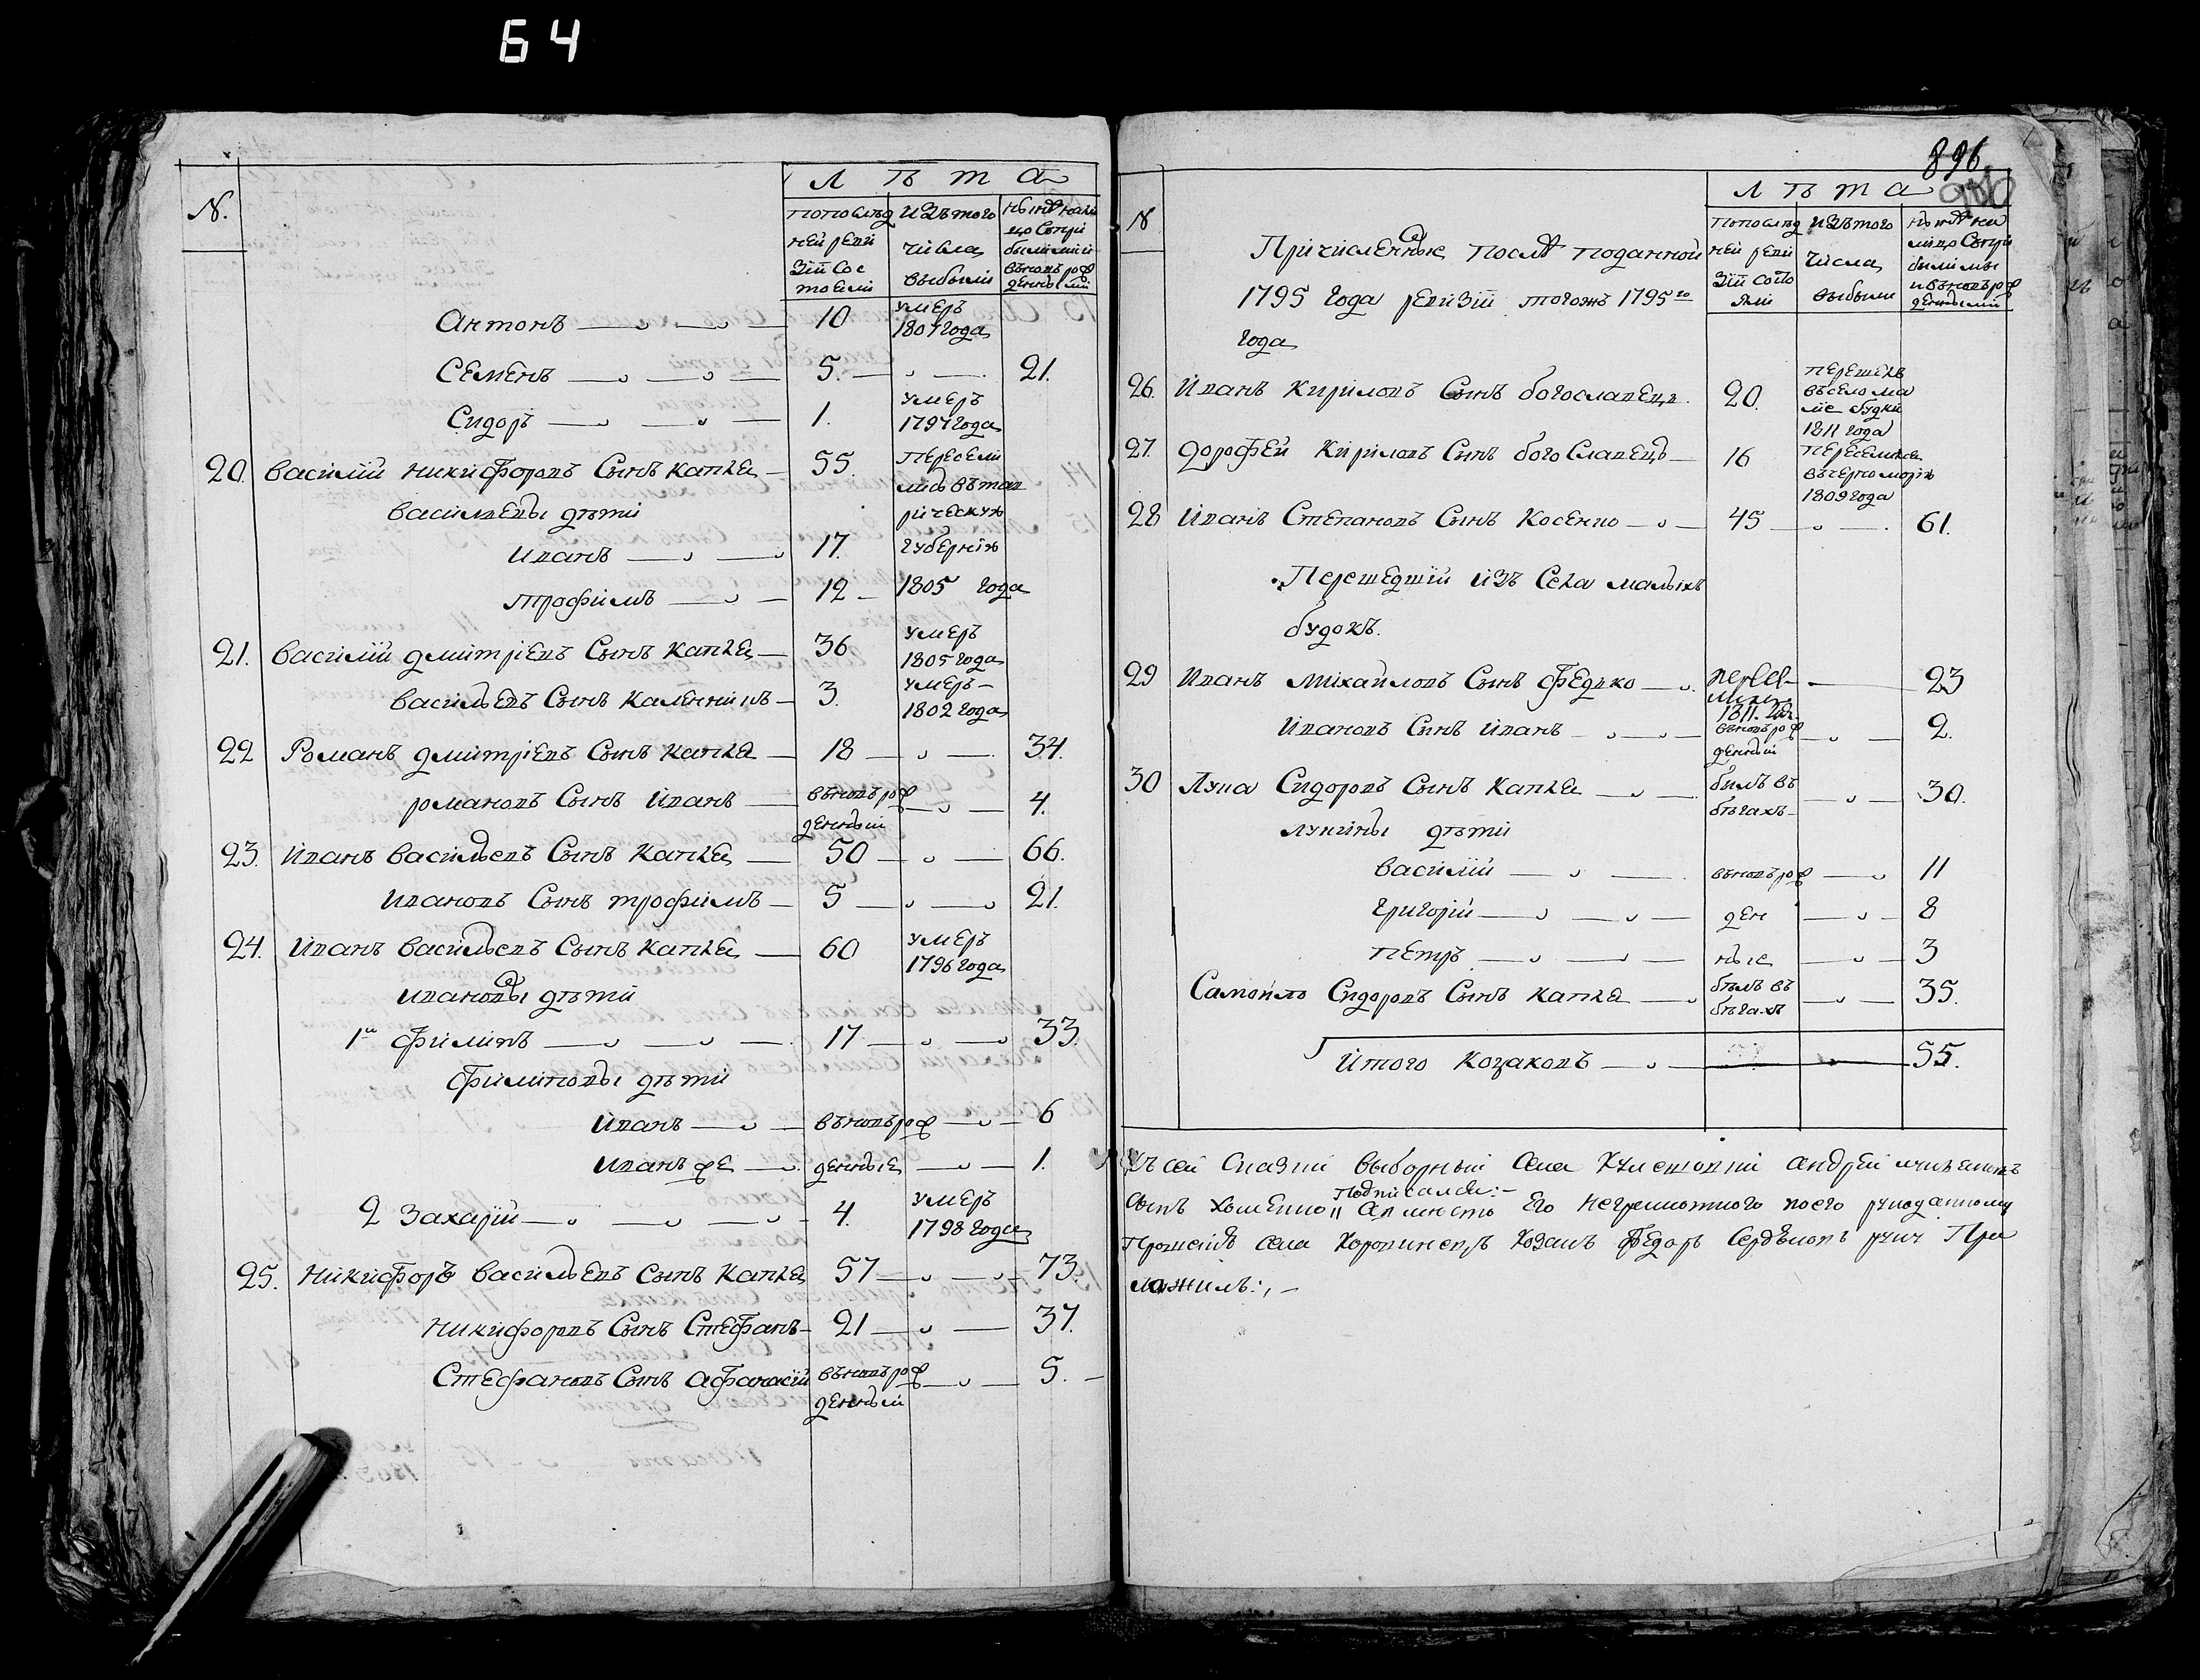 64
Л ѣ т а
N.
попослѣд ней ревизіи состояли
изътого числа выбыли
Антонъ 10 умеръ 1807 года
Семенъ 5. 21.
Сидоръ 1. умеръ 1797 года
20. Василій Никифоровъ Сынъ Капка 55. Пересели
лись въ тав
Васильевы дѣти рическую
Иванъ 17. Губернію
Трофимъ 12 1805 года
21. Василій Дмитріевъ Сынъ Капка 36 умеръ 1805 года
Васильевъ Сынъ Калинникъ 3. умеръ 1802 года
22 Романъ Дмитріевъ Сынъ Капка 18 34.
Романовъ Сынъ Иванъ вновьрож денный 4.
23. Иванъ Васильевъ Сынъ Капка 50 66.
Ивановъ Сынъ Трофимъ 5 21.
24. Иванъ Васильевъ Сынъ Капка 60 умеръ 1796 года
Ивановы дѣти
1й Филипъ 17 33.
Филиповы дѣти
Иванъ вновьрож 6
Иванъ же денные 1.
2 Захарій 4. умеръ 1798 года
25. Никифоръ Васильевъ Сынъ Капка 57 73.
Никифоровъ Сынъ Стефанъ 21 37.
Стефановъ Сынъ Афанасій вновьрож денный 5.
896.
Л ѣ т а
N
попослѣд ней реви зіи состо яли
изътого числа выбыли
Причисленные послѣ поданной
1795 года ревизіи тогожъ 1795го
года
26. Иванъ Кириловъ Сынъ Богославецъ. 20. перешелъ въ село ма лые будки 1811 года
27. Дорофей Кириловъ Сынъ БогоСлавецъ 16 Переселился въ черноморію 1809 года
28 Иванъ Степановъ Сынъ Косенко 45 61.
Перешедшій изъ Села малыхъ
будокъ.
29 Иванъ Михайловъ Сынъ Федько 1811. 23
Ивановъ Сынъ Иванъ вновьрож денный 2.
30 Лука Сидоровъ Сынъ Капка былъ въ бѣгахъ 30.
Лукины дѣти
Василій вновьрож 11
Григорій ден 8
Петръ ные 3
Самойло Сидоровъ Сынъ Капка былъ въ бѣгахъ 35.
Итого Козаковъ 55.
Къ сей Сказки выборный Села Кулешовки Андрей
сынъ Хоменко
Подписался:
Его неграмотного
прошенію села Козакъ Федоръ руку При
ложилъ:,